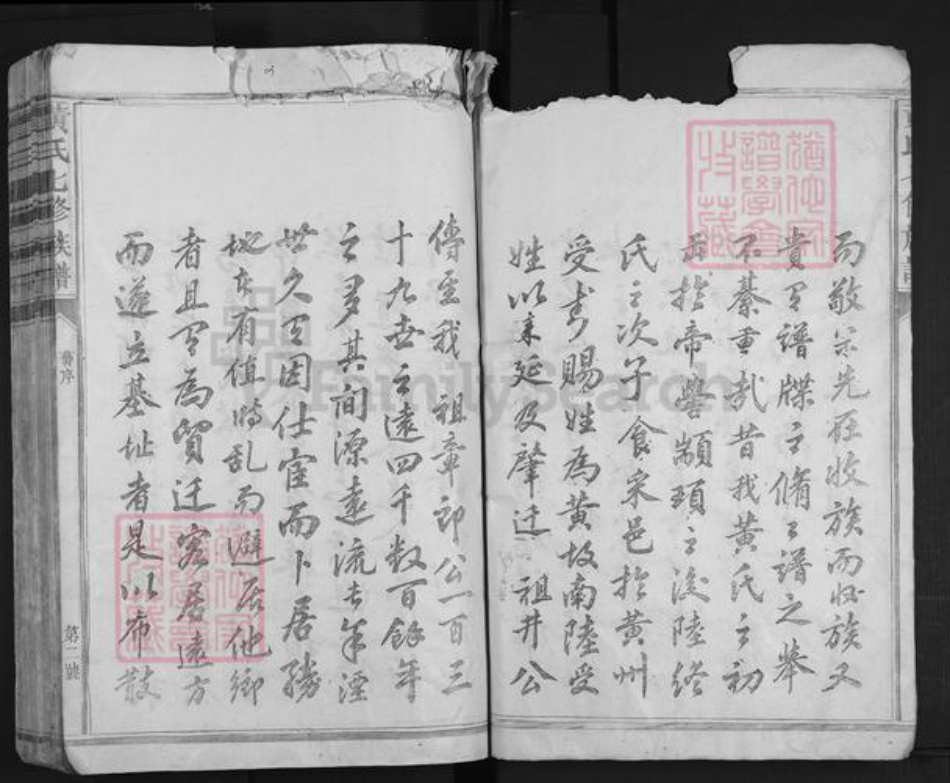 而敬宗先在收族而收族又
貴乎譜牒之脩之譜之舉
不綦重哉昔我黃氏之初
於帝嚳顓頊之後陸終
氏之次子食采邑於黃州
受封賜姓為黃故南陸受
姓以來延及肇迁 祖井公
傳至我 祖章郎公一百三
十九世之遠四千数百餘年
之多其间源遠流長年湮
世久又因仕宦而卜居勝
地亦有值時乱而避居他鄉
者且有為貿迁客居遠方
而遂立基址者是以布散
黃氏七修族譜
首序
第二號
猶他家
譜學會
收藏
FamilySearch